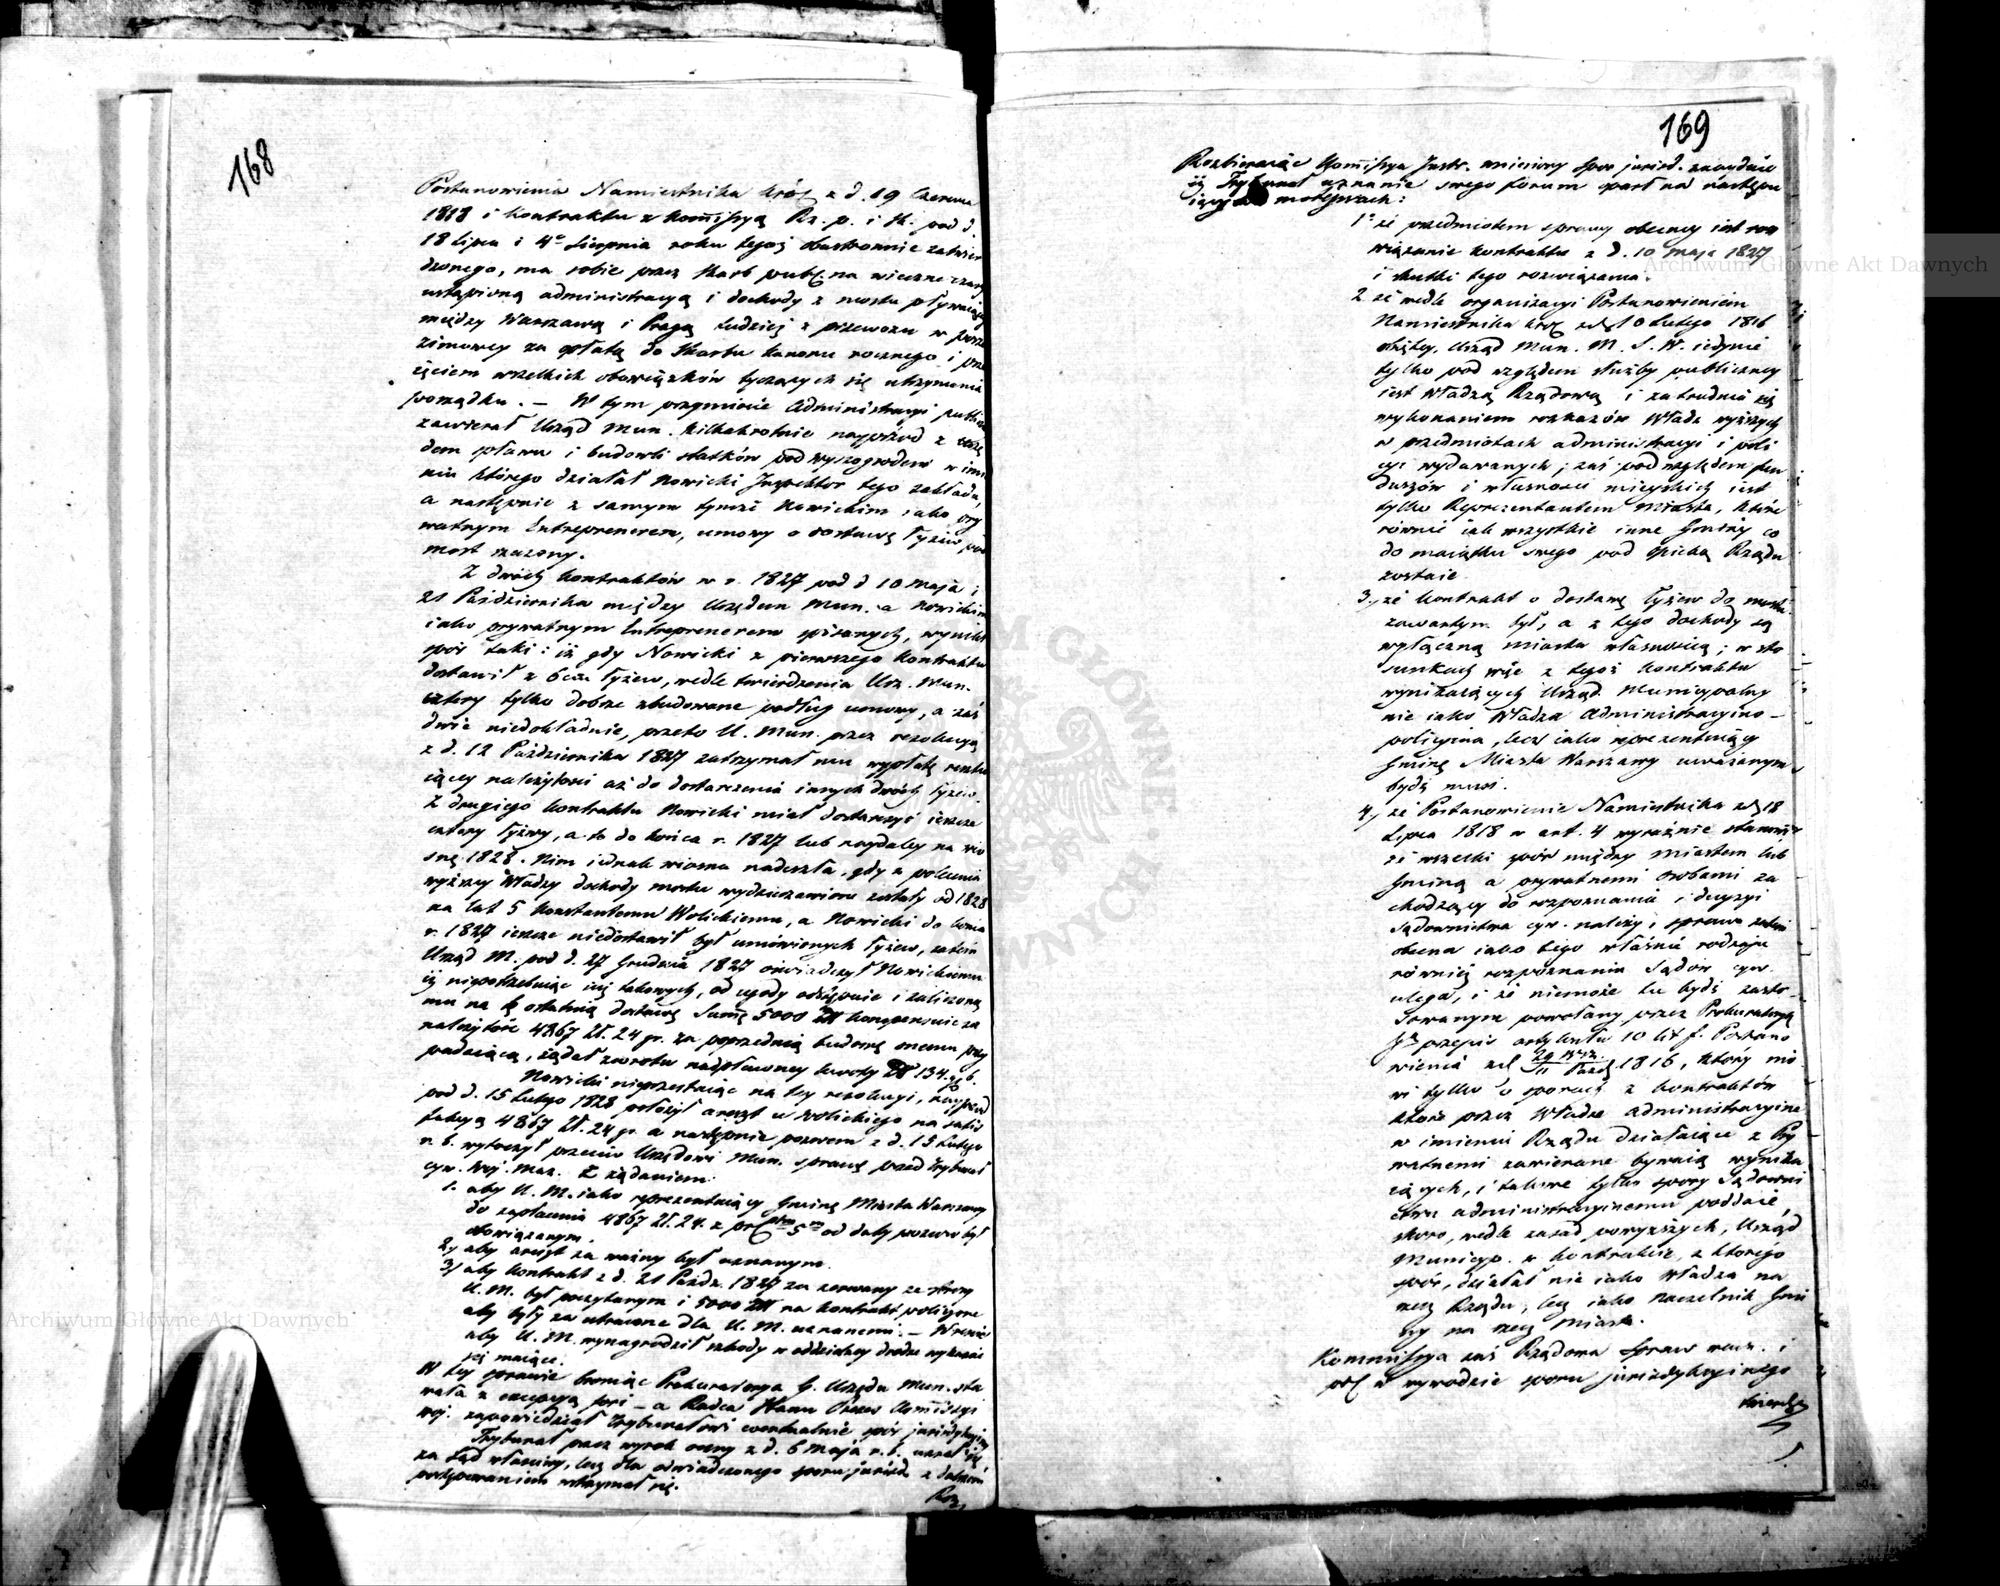 168
Postanowienia Namiestnika Król z d. 19 Czerwca
1818 i kontraktu z Kommissyą Rz. p. i sk. pod d.
18 Lipca i 4º Sierpnia roku tegoż obustronnie zatwier
dzonego, ma sobie przez Skarb publ. na wieczne czasy
ustąpioną administracyą i dochody z mostu pływaiącego
między Warszawą i Pragą tudzież z przewozu w porze
zimowey za opłatą do Skarbu kanonu rocznego i przy
ięciem wszelkich obowiązków tyczących się utrzymania
porządku. — W tym przymiocie Administracyi publiczney
zawierał Urząd Mun. kilkakrotnie naprzód z
dem spławu i budowli statków pod Wyszogrodem w imie
niu którego działał Nowicki Inspektor tego zakładu,
a następnie z samym tymże Nowickim iako pry
watnym Entreprenerem, umowy o dostawę łyżew pod
most rzeczony.
Z dwóch kontraktów w r. 1827 pod d 10 Maja i
21 Października między Urzędem Mun. a Nowickim
iako prywatnym Entreprenerem spisanych, wynikł
spór taki: iż gdy Nowicki z pierwszego kontraktu
dostawił z 6ciu łyżew, wedle twierdzenia Urz. Mun.
cztery tylko dobrze zbudowane podług umowy, a zaś
dwie niedokładnie, przeto U. Mun. przez rezolucyą
z d. 12 Października 1827 zatrzymał mu wypłatę resztu
iącey należytości aż do dostarczenia innych dwóch łyżew.
Z drugiego kontraktu Nowicki miał dostarczyć ieszcze
cztery łyżwy, a to do końca r. 1827 lub naydaley na wio
snę 1828. Nim iednak wiosna nadeszła, gdy z polecenia
wyższey Władzy dochody mostu wydzierżawione zostały od 1828
na lat 5 Konstantemu Wolickiemu, a Nowicki do końca
r. 1827 ieszcze niedostawił był umówionych łyżew, zatém
Urząd M. pod d. 27 Grudnia 1827 oświadczył Nowickiemu
iż niepotrzebuiąc iuż takowych, od ugody odstępuie i zaliczoną
mu na tę ostatnią dostawę Summę 5000 Zł kompensuie za
należytość 4867 Zł. 24 gr. za poprzednią budowę onemu przy
padaiącą, żądał zwrotu nadpłaconey kwoty Zł 134. gr 6.
Nowicki nieprzestaiąc na tey rezolucyi, naprzód
pod d. 15 Lutego 1828 położył areszt u Wolickiego na satis
fakcyą 4867 Zł. 24 gr. a następnie pozwem z d. 15 Lutego
r. b. wytoczył przeciw Urzędowi Mun. sprawę przed Trybunał
cyw. Woj. Maz. z żądaniem:
1. aby U. M. iako reprezentuiący Gminę Miasta Warszawy
do zapłacenia 4867 Zł. 24. z prCentem 5m od daty pozwu był
obowiązanym.
2, aby areszt za ważny był uznanym.
3, aby kontrakt z d. 21 Paźdz. 1827 za zerwany ze strony
U. M. był poczytanym i 5000 Zł na kontrakt policzone
aby były za utracone dla U. M. uznanemi. — Wreszcie
aby U. M. wynagrodził szkody w oddzielney drodze wykazać
się maiące.
W tey sprawie broniąc Prokuratorya G. Urzędu Mun. sta
wała z excepcyą fori — a Radca Stanu Prezes Kommissyi
woj. zapowiedział Trybunałowi ewentualnie spór juriadykcyiny
Trybunał przez wyrok oczny z d. 6 Maja r. b. uznał się
za Sąd właściwy, lecz dla oświadczonego sporu juriżd. z dalszem
postępowaniem wstrzymał się.
Roz,
169
Rozbieraiąc Kommissya Justr. wniesiony spór jurizd. znayduie
iż Trybunał uznanie swego forum oparł na następu
iących motywach:
1º że przedmiotem sprawy obecney iest roz
wiązanie kontraktu z d. 10 Maja 1827
i skutki tego rozwiązania.
2 że wedle organizacyi Postanowieniem
Namiestnika Król z d 10 Lutego 1816
Urząd Mun. M. S. W. iedynie
tylko pod względem służby publiczney
iest Władzą Rządową i zatrudnia się
wykonaniem rozkazów Władz wyższych
w przedmiotach administracyi i poli
cyi wydawanych; zaś pod względem fun
duszów i własności mieyskich iest
tylko Reprezentantem Miasta, które
równie iak wszystkie inne Gminy co
do maiątku swego pod opieką Rządu
zostaie.
3, że kontrakt o dostawę łyżew do mostu
zawartym był, a z tego dochody są
wyłączną miasta własnością; w sto
sunkach więc z tegoż kontraktu
wynikaiących Urząd Municypalny
nie iako Władza Administracyino-
policyina, lecz iako reprezentuiący
Gminę Miasta Warszawy uważanym
bydź musi.
4, że Postanowienie Namiestnika z d 18
Lipca 1818 w art. 4 wyraźnie stanowi
że wszelki spór między Miastem lub
Gminą a prywatnemi osobami za
chodzący do rozpoznania i decyzyi
Sądownictwa cyw. należy, sprawa zatem
obecna iako tego właśnie rodzaju
również rozpoznaniu Sądów cyw.
ulega, i że niemoże tu bydź zasto-
sowanym powołany przez Prokuratoryą
Jlną przepis artykułu 10 lit f. Postano
wienia z d 29 Wrz. / 11 Paźd 1816, który mó
wi tylko o sporach z kontraktów
które przez Władze administracyine
w imieniu Rządu działaiące z Pry
watnemi zawierane bywaią wynika
iących, i takowe tylko spory Sądowni
ctwu administracyinemu poddaie,
skoro, wedle zasad powyższych, Urząd
Municyp. w kontrakcie, z którego
spór, działał nie iako Władza na
rzecz Rządu, lecz iako Naczelnik Gmi
ny na rzecz Miasta.
Kommissya zaś Rządowa Spraw wew. i
pol w wywodzie sporu juriżdykcyinego
twierdzi
Archiwum Główne Akt Dawnych
Archiwum Główne Akt Dawnych